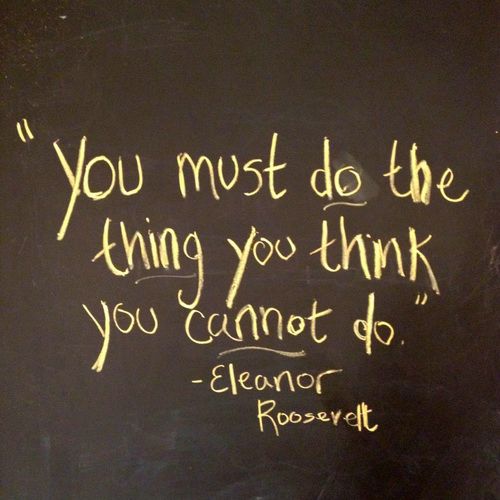 "You must do the
thing you think
you cannot do."
-Eleanor
Roosevelt